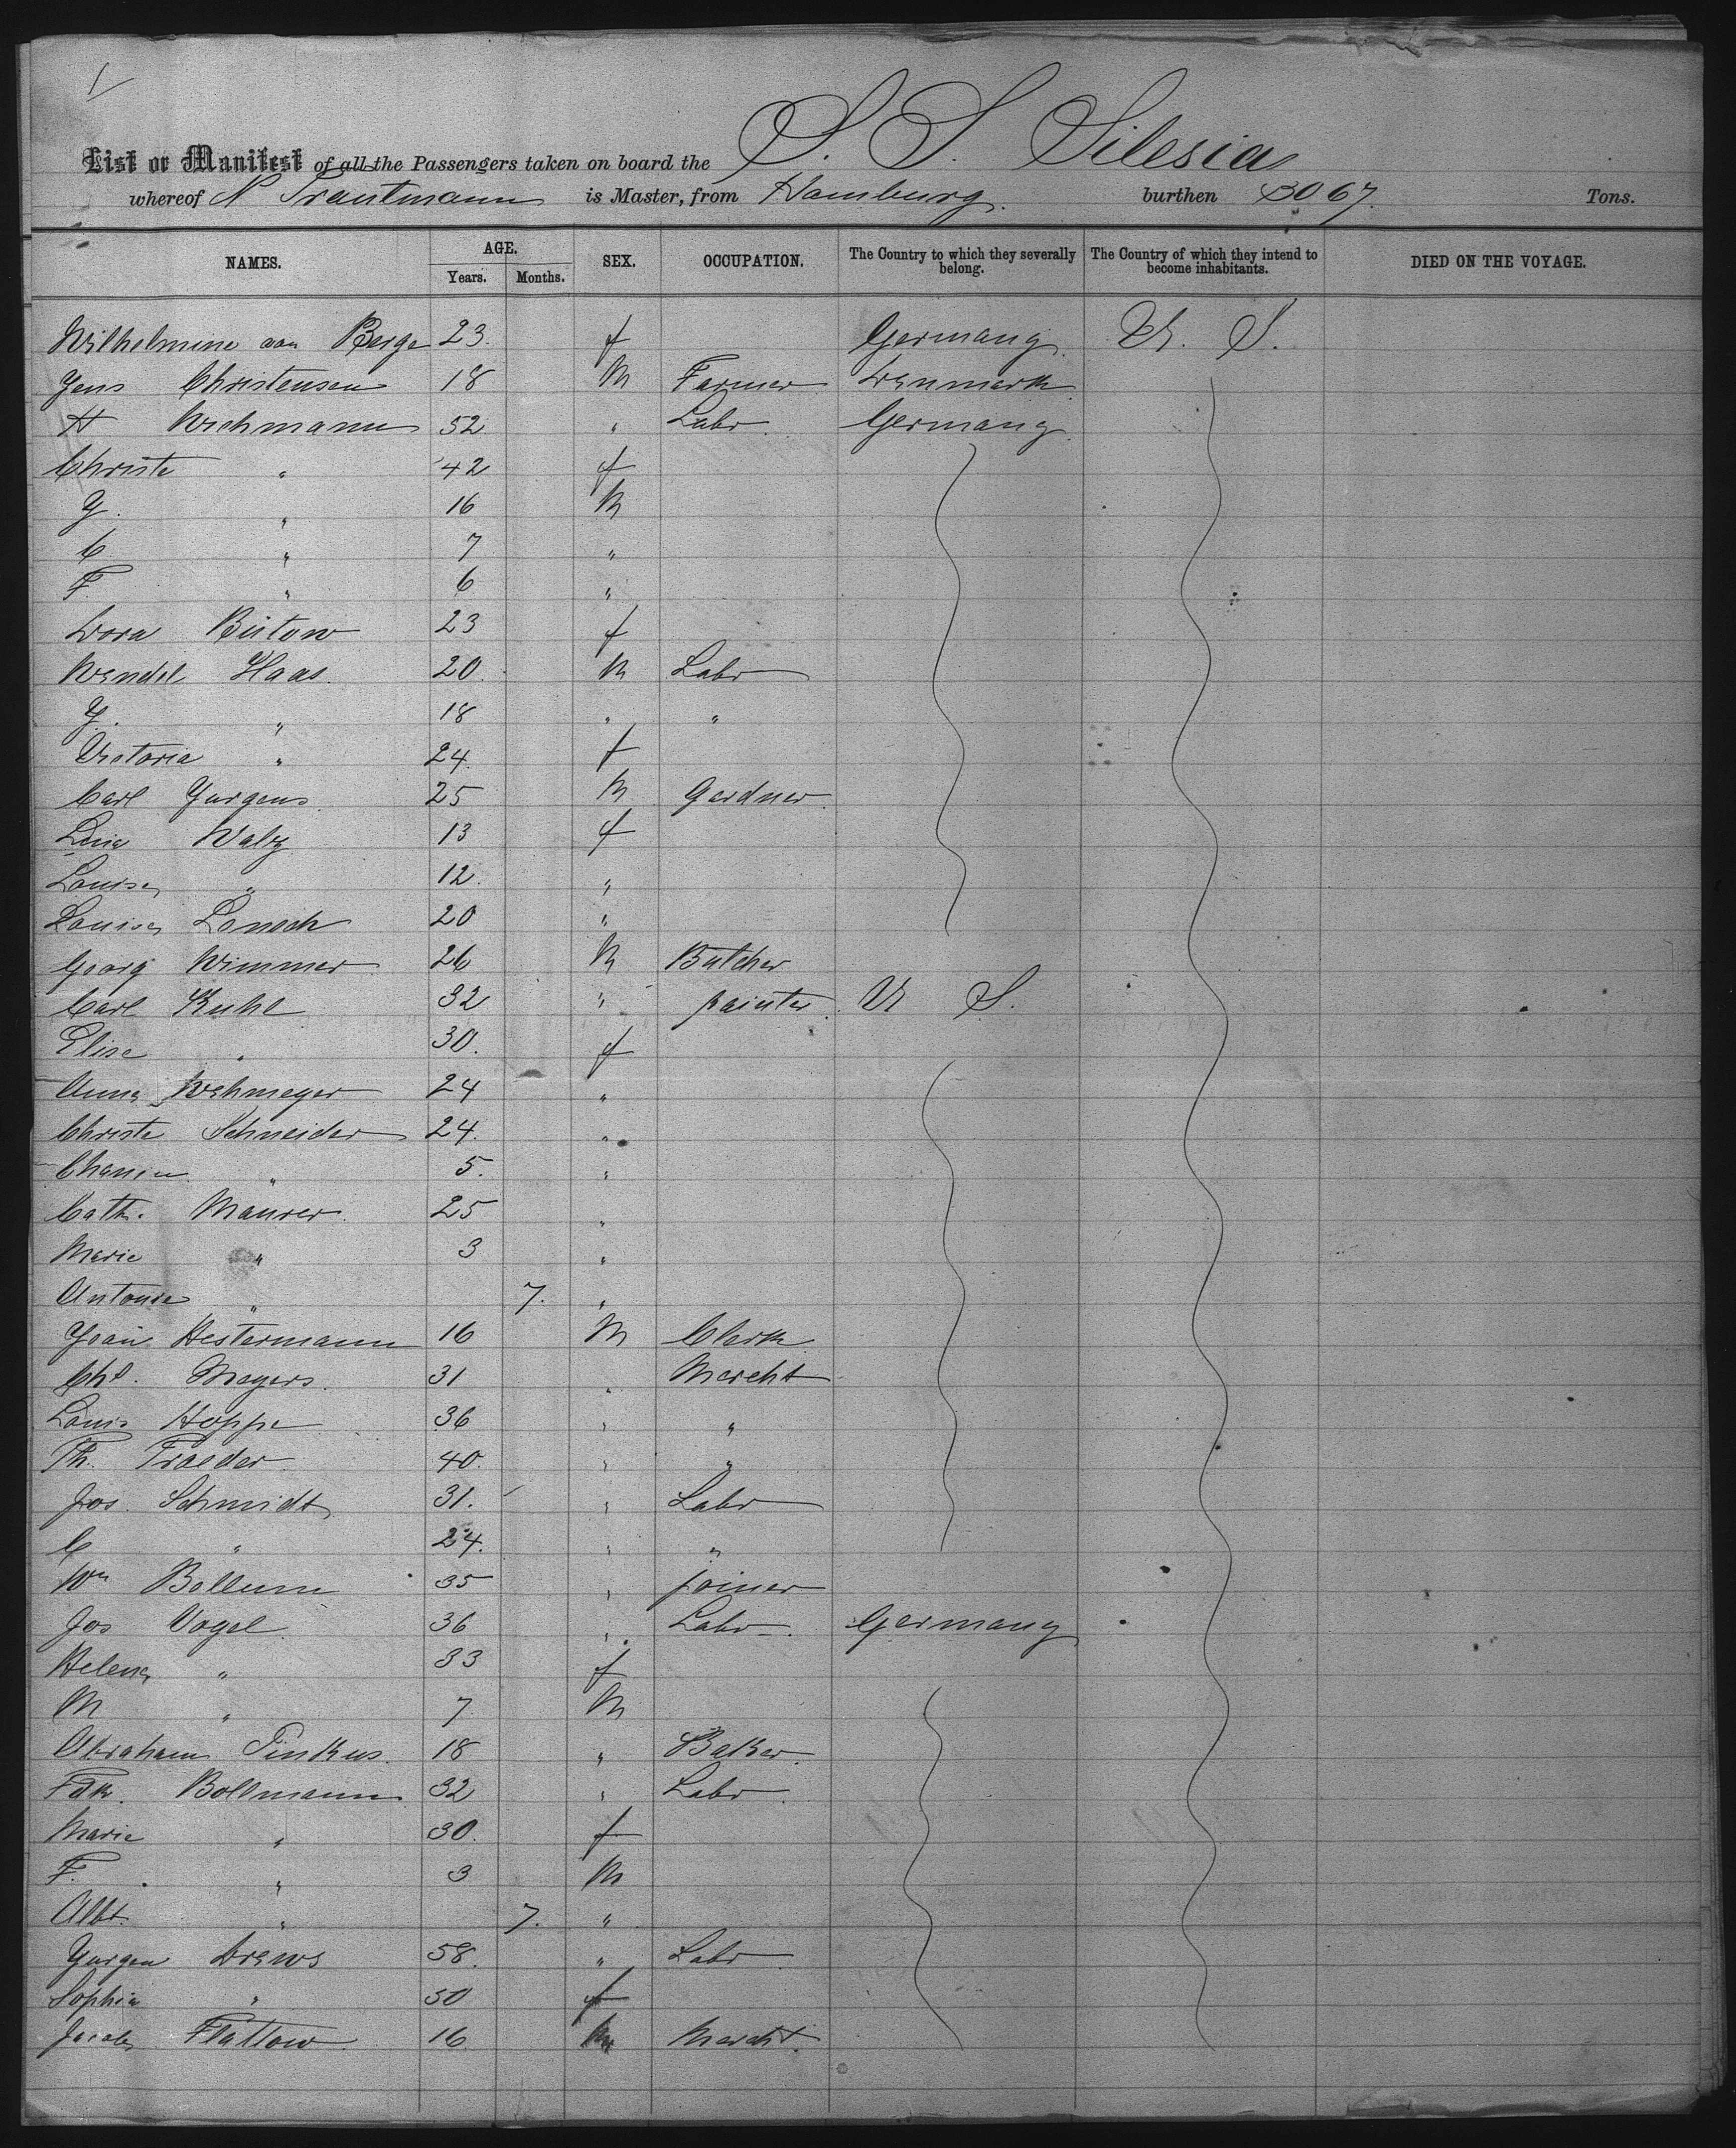 List or Manifest of all the Passengers taken on board the S. S. Silesia
whereof N Trautmann is Master, from Hamburg. burthen 3067. Tons.
NAMES. AGE. Years. Months. SEX. OCCUPATION. The Country to which they severally belong. The Country of which they intend to become inhabitants. DIED ON THE VOYAGE.
Wilhelmine von Berge 23. f Germany. U. S.
Jens Christensen 18 M Farmer Denmark
H Wichmann 52 " Labr Germany
Christe " 42 f
J. " 16 M
C " 7 "
F. " 6 "
Dora Bütow 23 f
Wendel Haas. 20. M Labr
J. " 18 " "
Victoria " 24. f
Carl Jurgens 25 M Gardner.
Lina Waltz 13 f
Louise " 12. "
Louise 20 "
Georg Wimmer 26 M Butcher
Carl Kuhl 32 " painter. U S.
Elise " 30. f
Anna Wehmeyer 24 "
Christe Schneider 24. "
" 5. "
Cath. Maurer 25 "
Marie " 3 "
Antonie " 7. "
Hestermann 16 M Clerk
Chs. Meyers. 31 " Mercht
Louis Hoppe 36 " "
Th. Traeder 40. " "
Jos. Schmidt 31. " Labr
C " 24. " "
Wm 35 " joiner
Jos Vogel 36 " Labr. Germany
Helene " 33 f
M " 7 M
Abraham Pinkus. 18 " Baker.
Fdk. Bollmann 32 " Labr.
Marie " 30. f
F. " 3 M
Albt. " 7. "
Jurgen Drews 58. " Labr
Sophia " 50 f
Jacob Flattow 16 M Mercht.